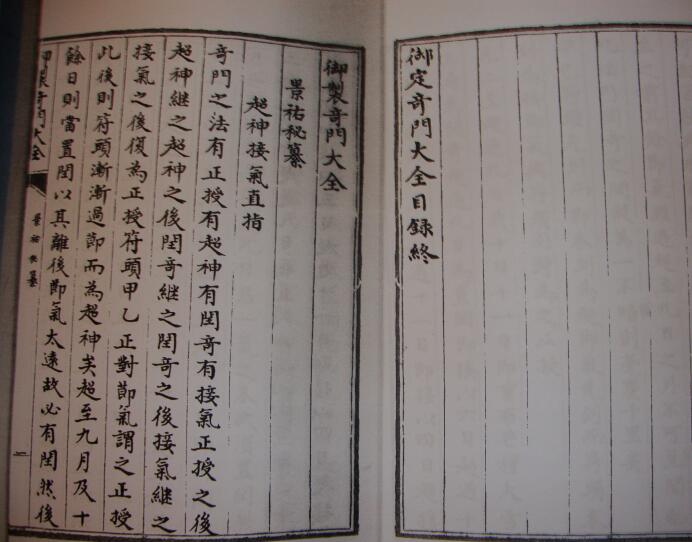 御定奇門大全目録終
御製奇門大全
景祐秘纂
超神接氣直指
奇門之法有正授有超神有閏奇有接氣正授之後
超神継之超神之後閏奇継之閏奇之後接氣継之
接氣之後復為正授符頭甲乙正對節氣謂之正授
此後則符頭漸漸過節而為超神矣超至九月及十
餘日則當置閏以其離後節氣太遠故必有閏然後
御製奇門大全
景祐秘纂